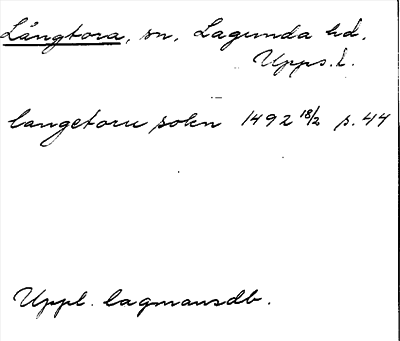 Långtora, sn, Lagunda hd.
Upps. l.
langetoru sokn 1492 18/2 s. 44
Uppl. lagmansdb.